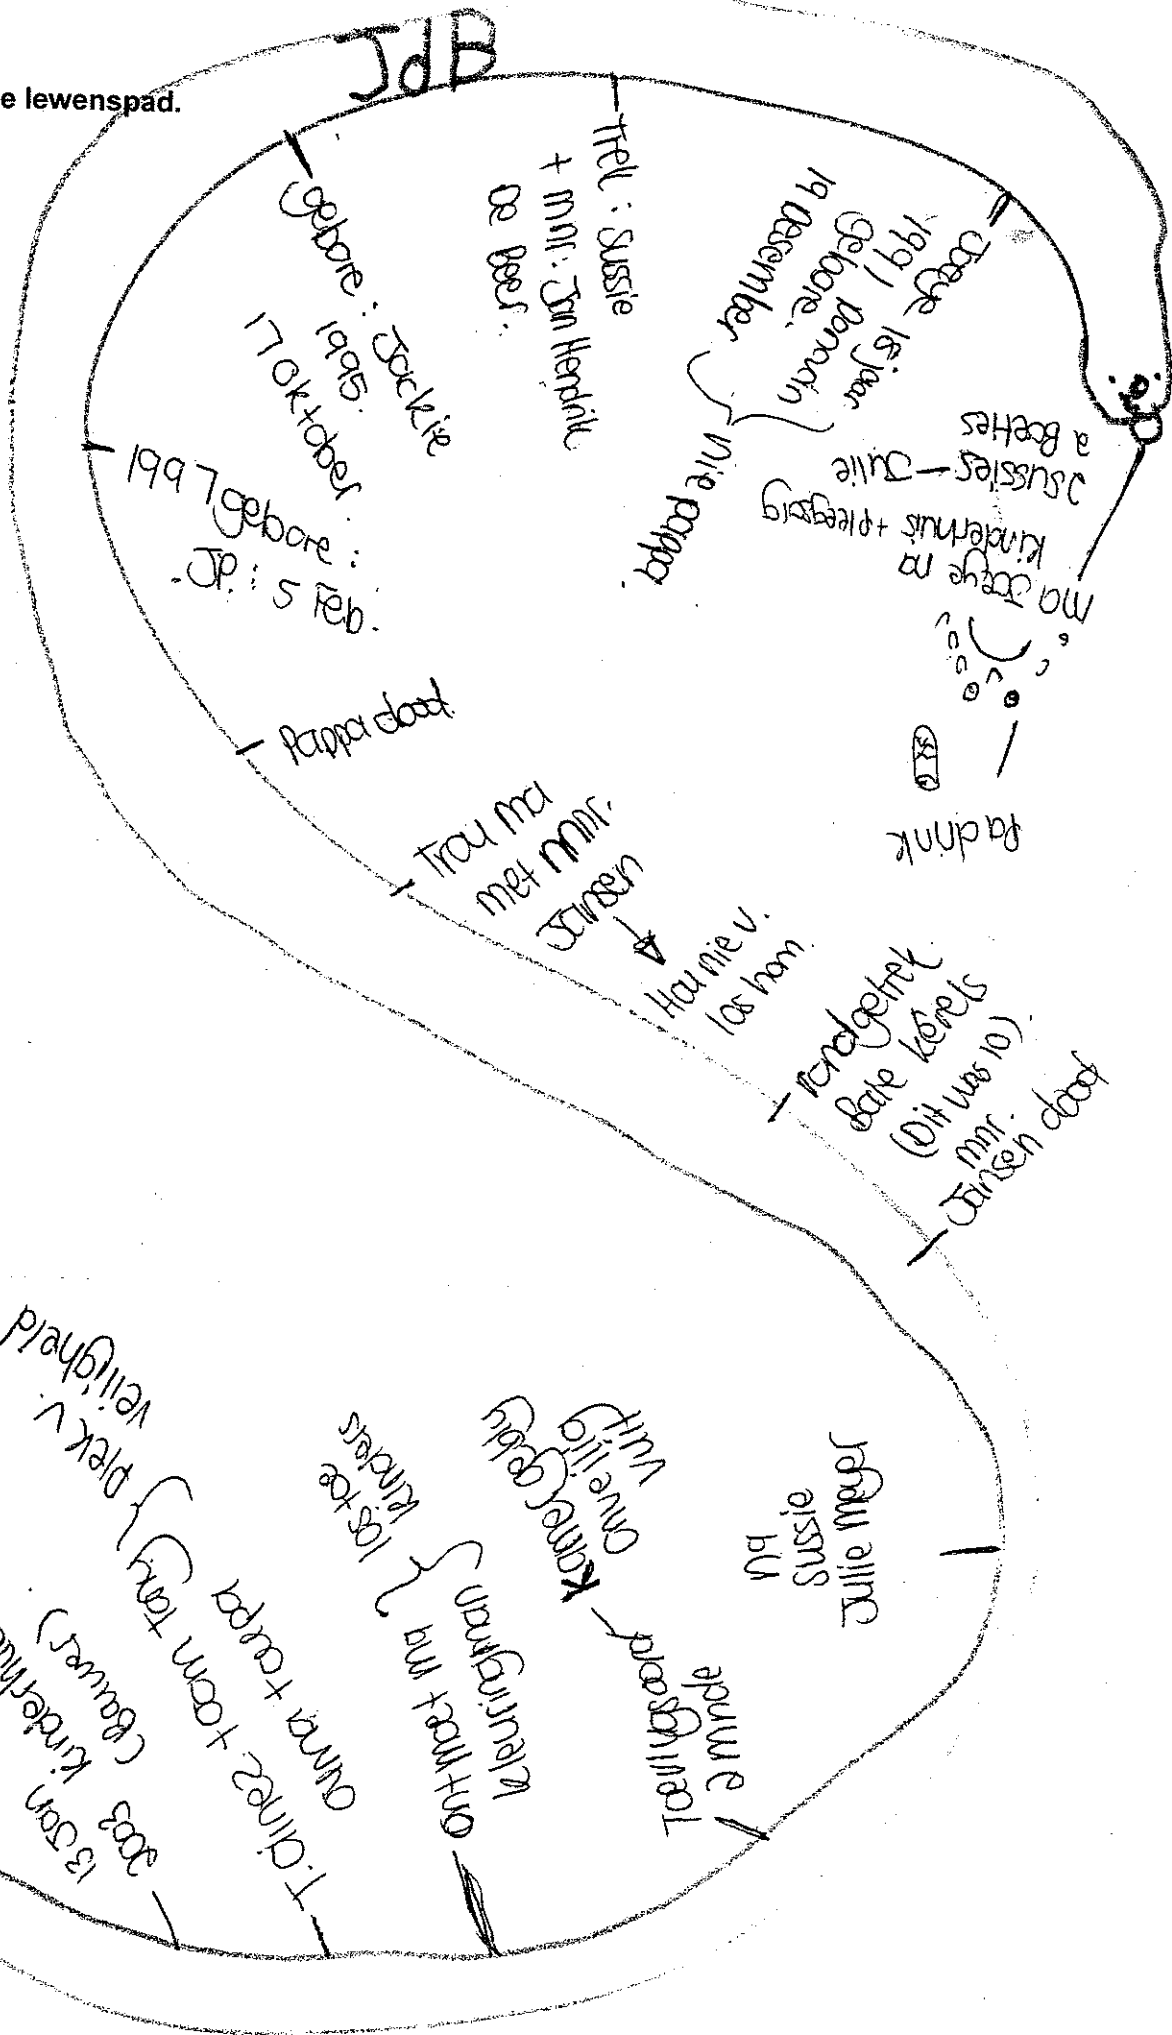 e lewenspad.
JdB
Pa drink
ma Joeye na
kinderhuis + pleegsorg
2 sussies - Julie
2 Boeties
Joeye 18 jaar
1991 Donovin
gebore.
19 Desember
nie pappa.
Trek : Sussie
+ mnr: Jan Hendrik
De Beer.
gebore : Jackie
1995.
17 Oktober.
1997 gebore :
JP: 5 Feb.
Pappa dood.
Trou ma
met mnr.
Jansen
Hou nie v.
los hom.
rondgetrek
Baie kêrels
(Dit was 10)
mnr.
Jansen dood
Julie Margaf
Sussie
Ny
Toevlugsoord
2 mnde
Kamer gebly
onveilig
vuil
Ontmoet ma
kleuringman
los toe
kinders
T. Dinee + oom Tony
ouma + oupa
plek v.
veiligheid
13 Jan kinderhuis
2003 (Bauwer)